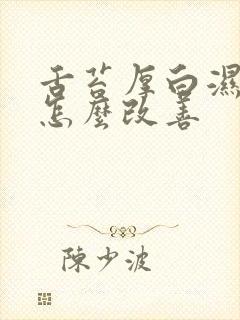 舌苔厚白濕
怎麼改善
陳少波